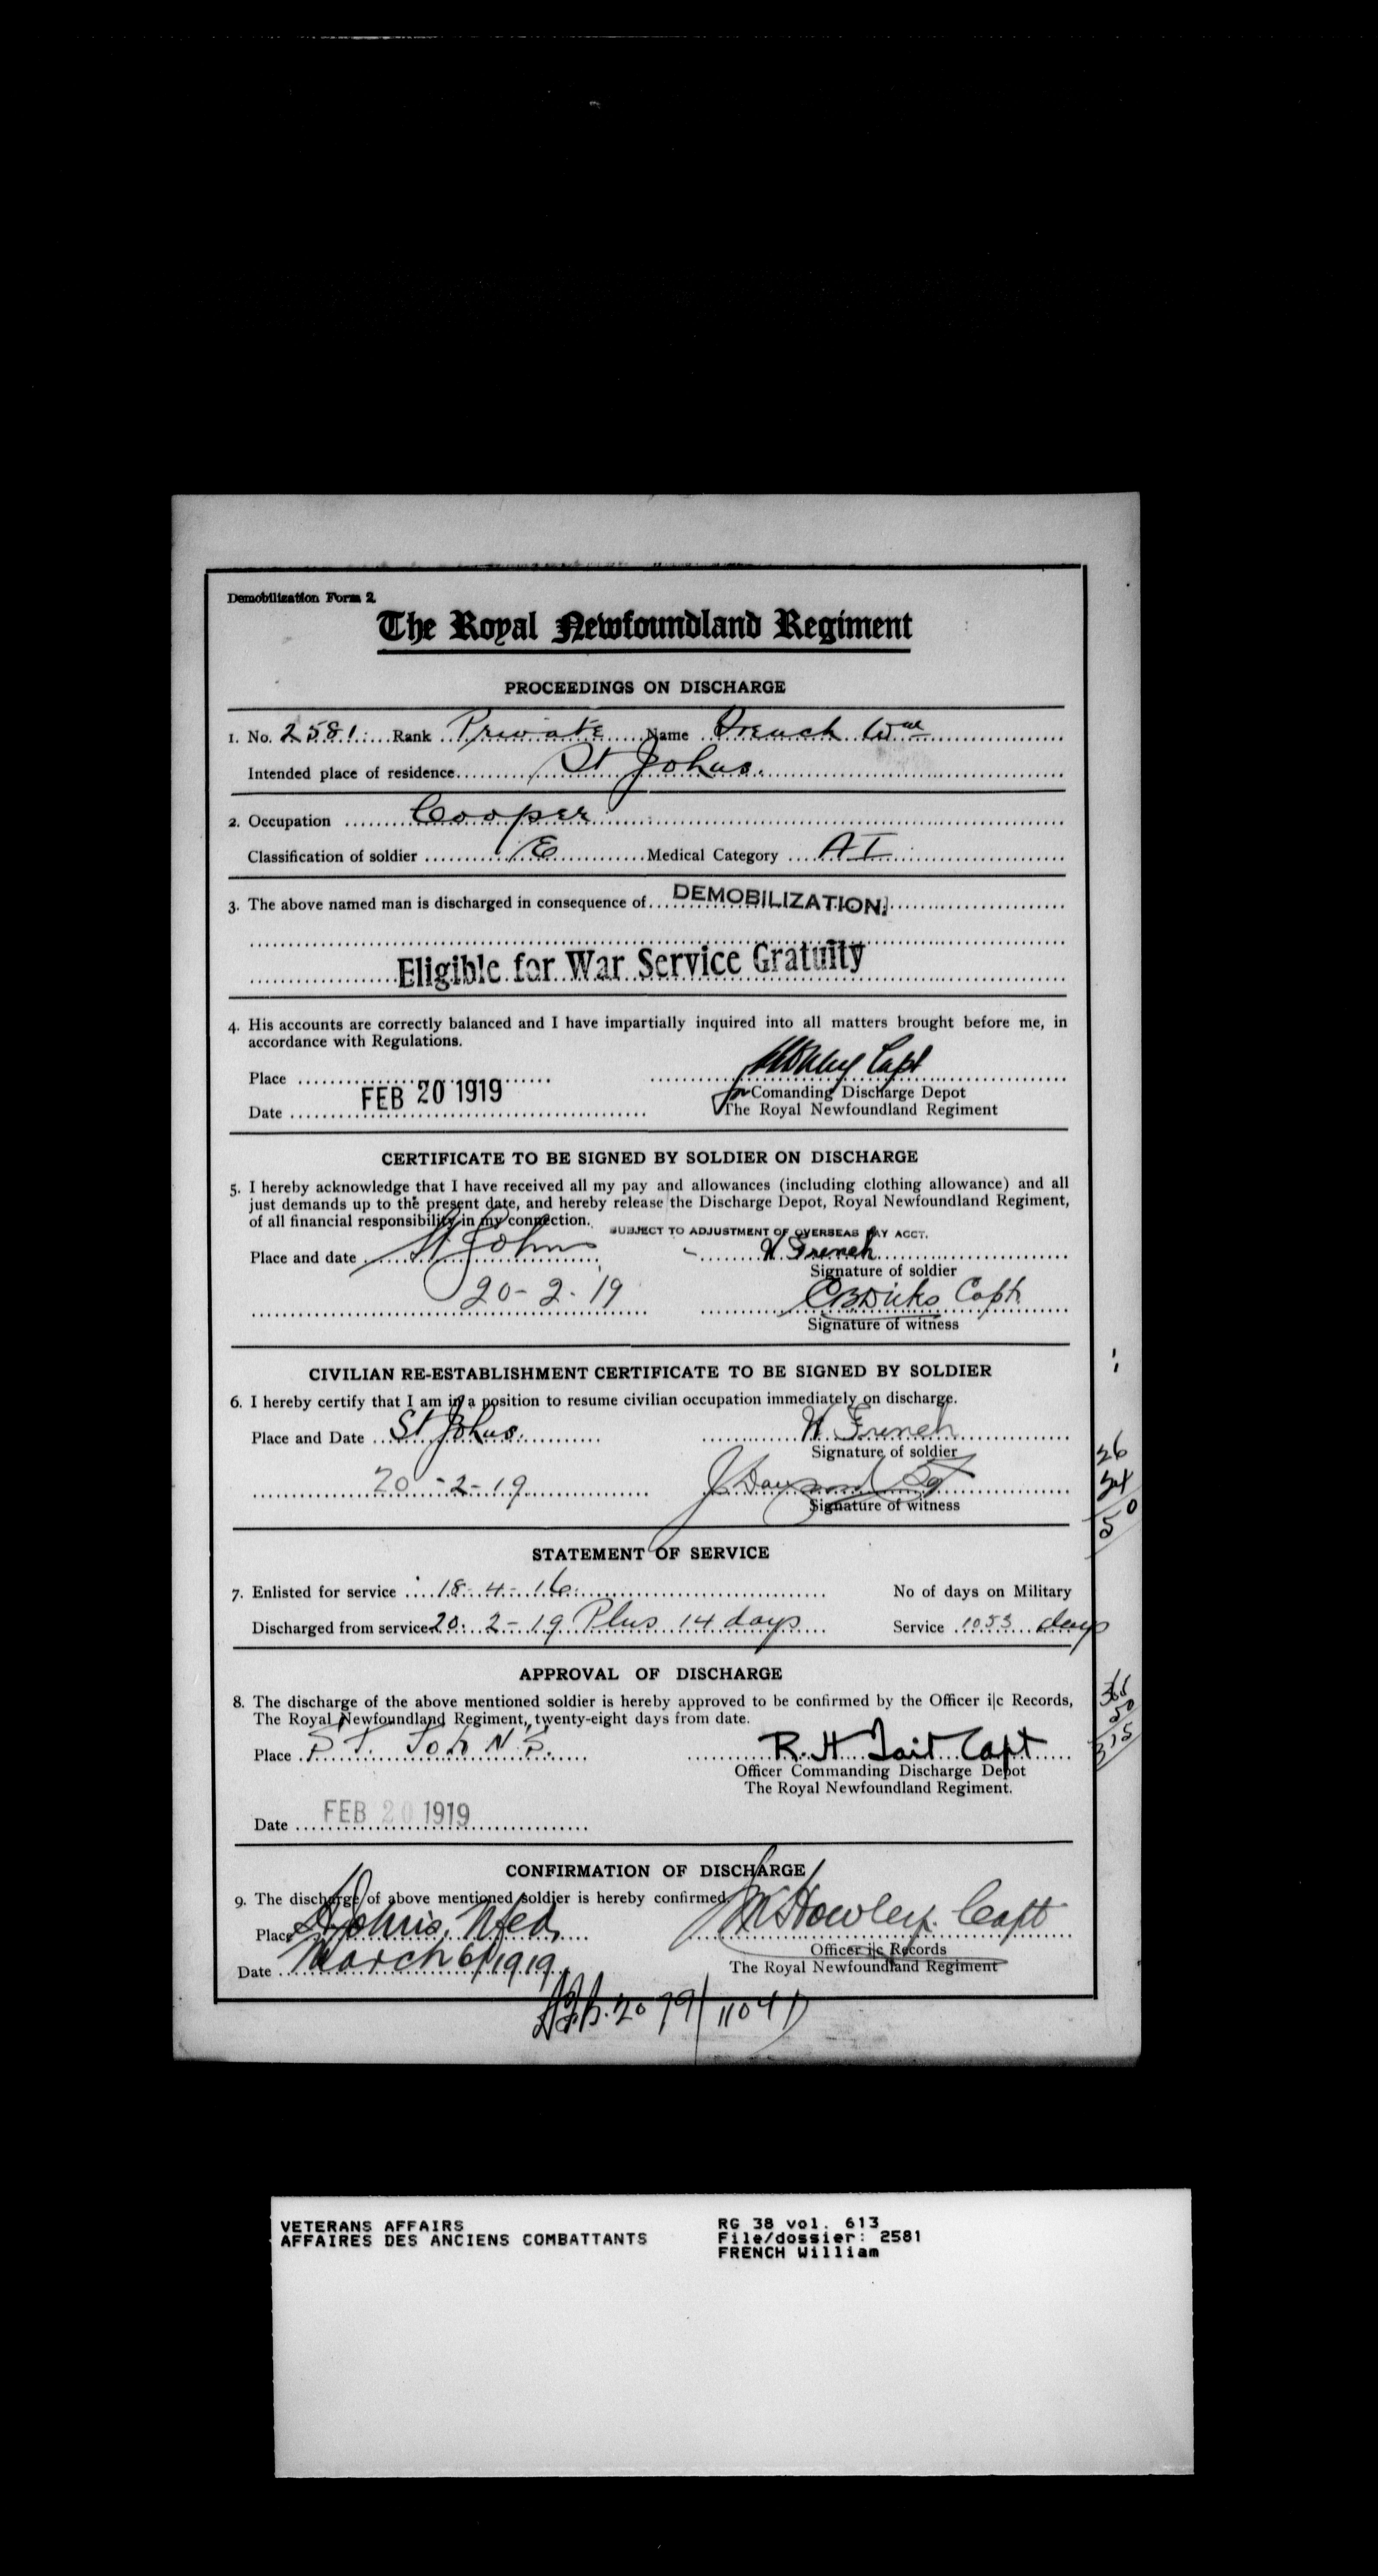 Demobilization Form 2
The Royal Newfoundland Regiment
PROCEEDINGS ON DISCHARGE
1. No. 2581 Rank Private Name French Wm
Intended place of residence St Johns.
2. Occupation Cooper
Classification of soldier E Medical Category A I
3. The above named man is discharged in consequence of DEMOBILIZATION.
Eligible for War Service Gratuity
4. His accounts are correctly balanced and I have impartially inquired into all matters brought before me, in
accordance with Regulations.
Capt
Place
for Comanding Discharge Depot
Date FEB 20 1919 The Royal Newfoundland Regiment
CERTIFICATE TO BE SIGNED BY SOLDIER ON DISCHARGE
5. I hereby acknowledge that I have received all my pay and allowances (including clothing allowance) and all
just demands up to the present date, and hereby release the Discharge Depot, Royal Newfoundland Regiment,
of all financial responsibility in my connection. SUBJECT TO ADJUSTMENT OF OVERSEAS PAY ACCT.
Place and date St Johns W French
Signature of soldier
20-2-19 C B Dicks Capt
Signature of witness
CIVILIAN RE-ESTABLISHMENT CERTIFICATE TO BE SIGNED BY SOLDIER
6. I hereby certify that I am in a position to resume civilian occupation immediately on discharge.
Place and Date St Johns. W French
Signature of soldier
20-2-19
Signature of witness
26
24
50
STATEMENT OF SERVICE
7. Enlisted for service 18-4-16. No of days on Military
Discharged from service 20-2-19 Plus 14 days Service 1053 days
APPROVAL OF DISCHARGE
8. The discharge of the above mentioned soldier is hereby approved to be confirmed by the Officer i|c Records,
The Royal Newfoundland Regiment, twenty-eight days from date.
365
50
315
Place ST. JOHN'S. R. H Tait Capt
Officer Commanding Discharge Depot
The Royal Newfoundland Regiment.
Date FEB 20 1919
CONFIRMATION OF DISCHARGE
9. The discharge of above mentioned soldier is hereby confirmed
Place St Johns, Nfld. Howley. Capt
Officer i|c Records
Date March 6/1919. The Royal Newfoundland Regiment
VETERANS AFFAIRS RG 38 vol. 613
AFFAIRES DES ANCIENS COMBATTANTS File/dossier: 2581
FRENCH William